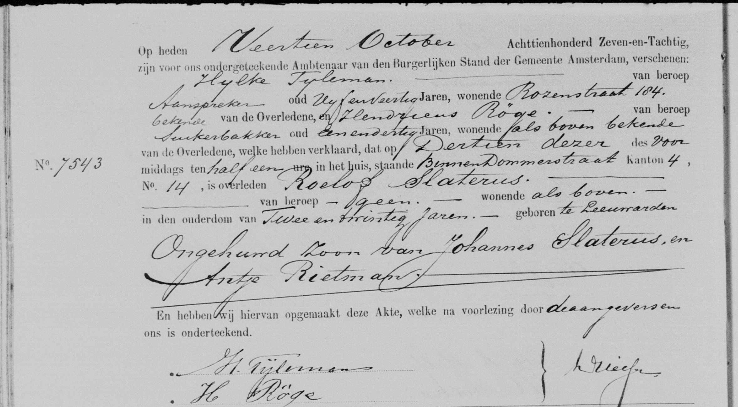 Op heden Veertien October Achttienhonderd Zeven-en-Tachtig,
zijn voor ons ondergeteekende Ambtenaar van den Burgerlijken Stand der Gemeente Amsterdam, verschenen:
Hylke Tyleman. van beroep
Aanspreker oud Vyfenveertig Jaren, wonende Rozenstraat 184.
bekende van de Overledene, en Hendricus Röge. — van beroep
Suikerbakker oud eenendertig Jaren, wonende als boven bekende
van de Overledene, welke hebben verklaard, dat op Dertien dezer des voor
middags ten half een ure in het huis, staande Binnen Dommerstraat Kanton 4,
No. 7543
No. 14, is overleden Roelof Slaterus.
van beroep — geen. — wonende als boven. —
in den ouderdom van Twee en twintig Jaren. — geboren te Leeuwarden
Ongehuwd zoon van Johannes Slaterus, en
Antje Rietman.
En hebben wij hiervan opgemaakt deze Akte, welke na voorlezing door de aangevers en
ons is onderteekend.
H. Tÿleman
H Röge